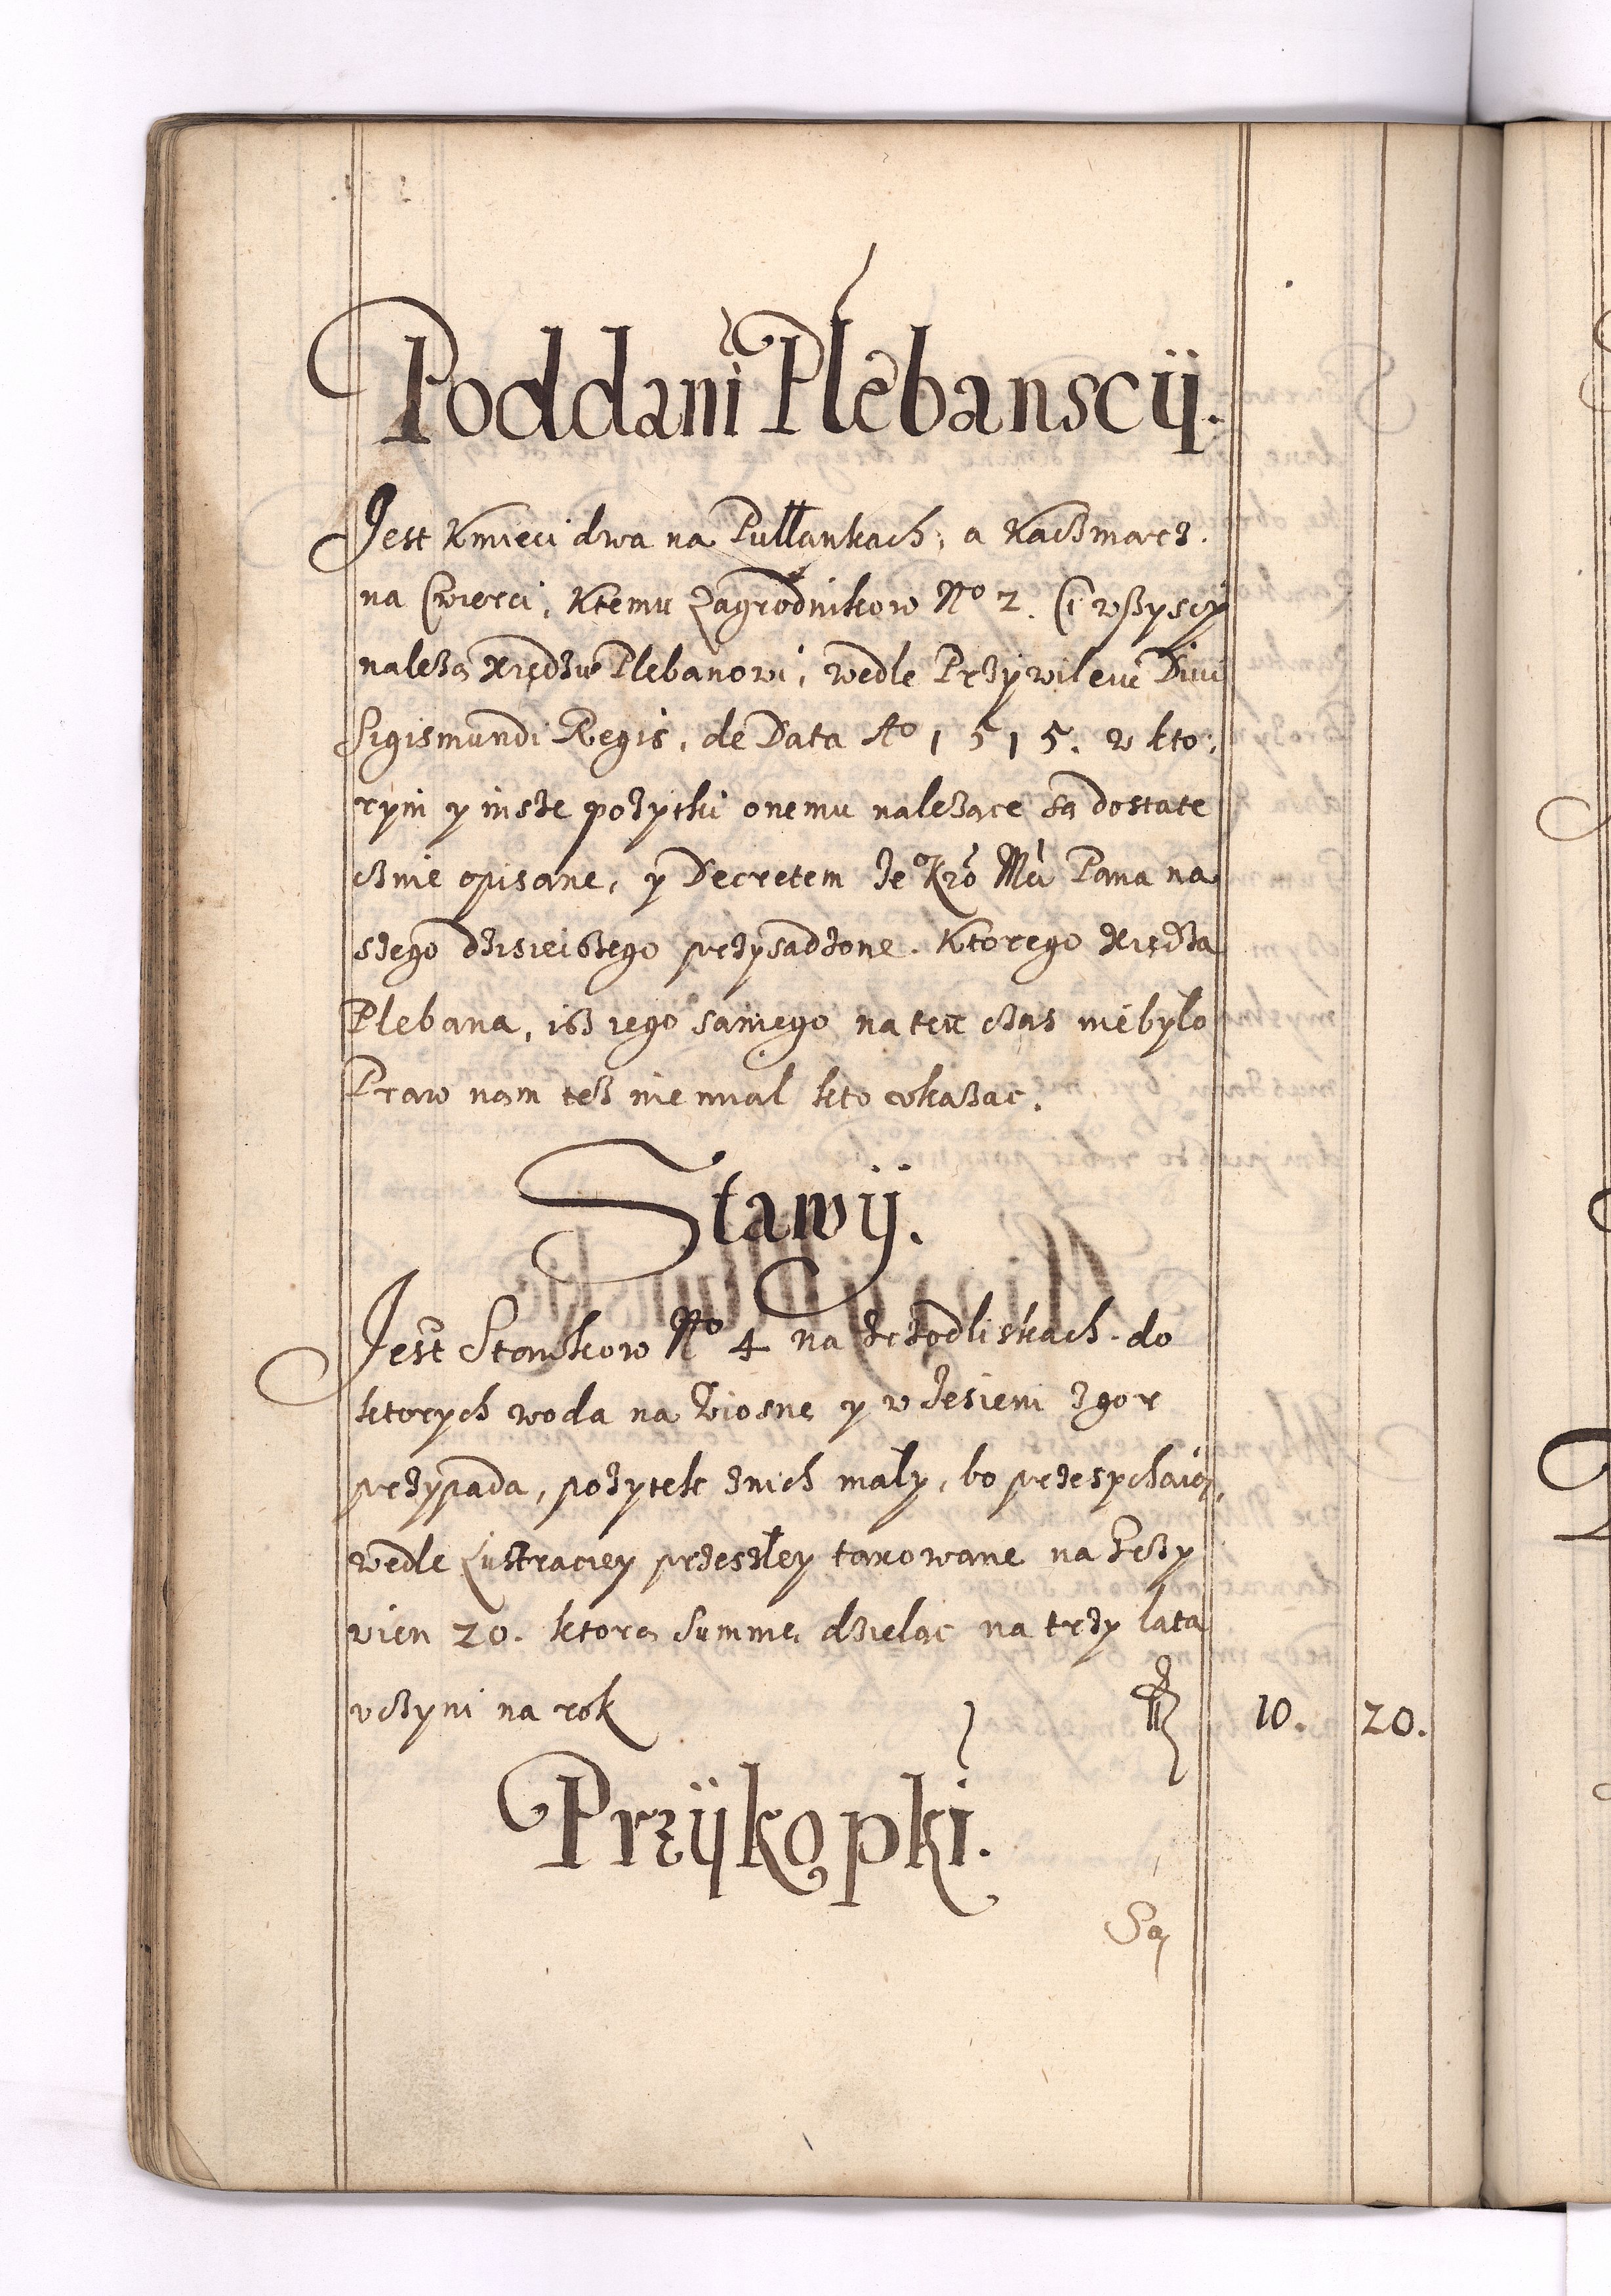 Poddani Plebanscÿ.
Jest Kmieci dwa na Pułłankach, a Kaczmarz.
na Cwierci, Ktemu Zagrodnikow No 2. Ci wszyscÿ
należą Xiędzu Plebanowi, wedle Przywileiu Divi
Sigismundi Regis, de Data Ao 1515. w kto:
rym y insze pożytki onemu należące są dostate
cznie opisane, y Decretem Je° Kró Mći Pana na
szego dzisieiszego przysądzone. Ktorego Xiędza
Plebana, isz iego samego na ten czas niebyło
Praw nam tesz niemiał kto vkazac.
Stawÿ.
Jest Stawkow No 4 na Zrzodliskach. do
ktorych woda na Wiosnę y w Jesieni z gor
przypada, pożytek z nich mały, bo przesychaią,
wedle Lustraciey przeszłey taxowane na Grzy
wien 20. ktorą Summę dzieląc na trzy lata
vczyni na rok fl 10. 20.
Przÿkopki.
Są